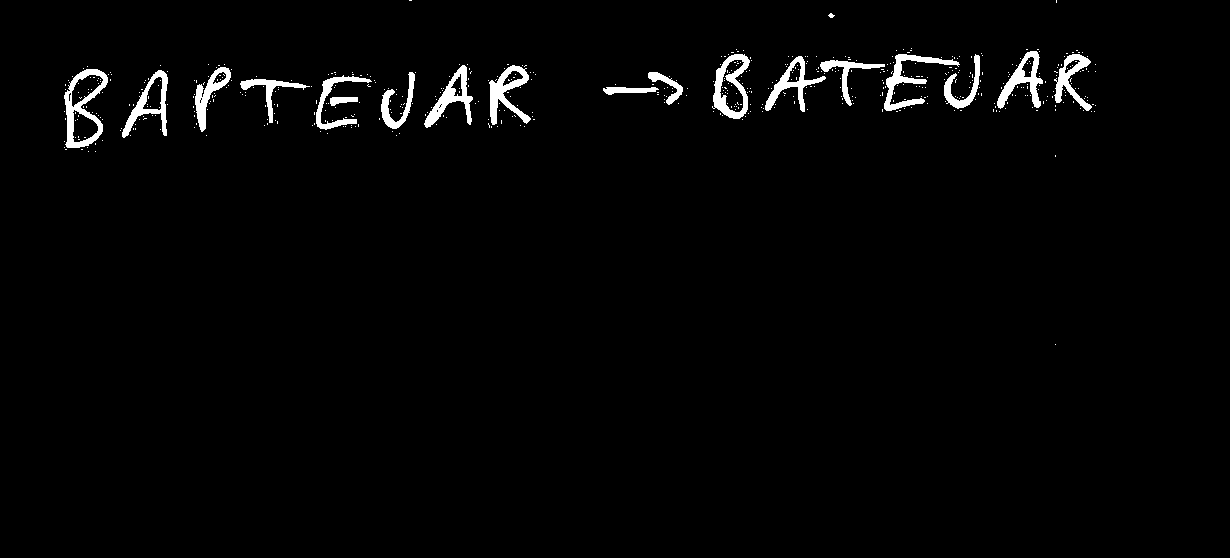 BAPTEJAR → BATEJAR